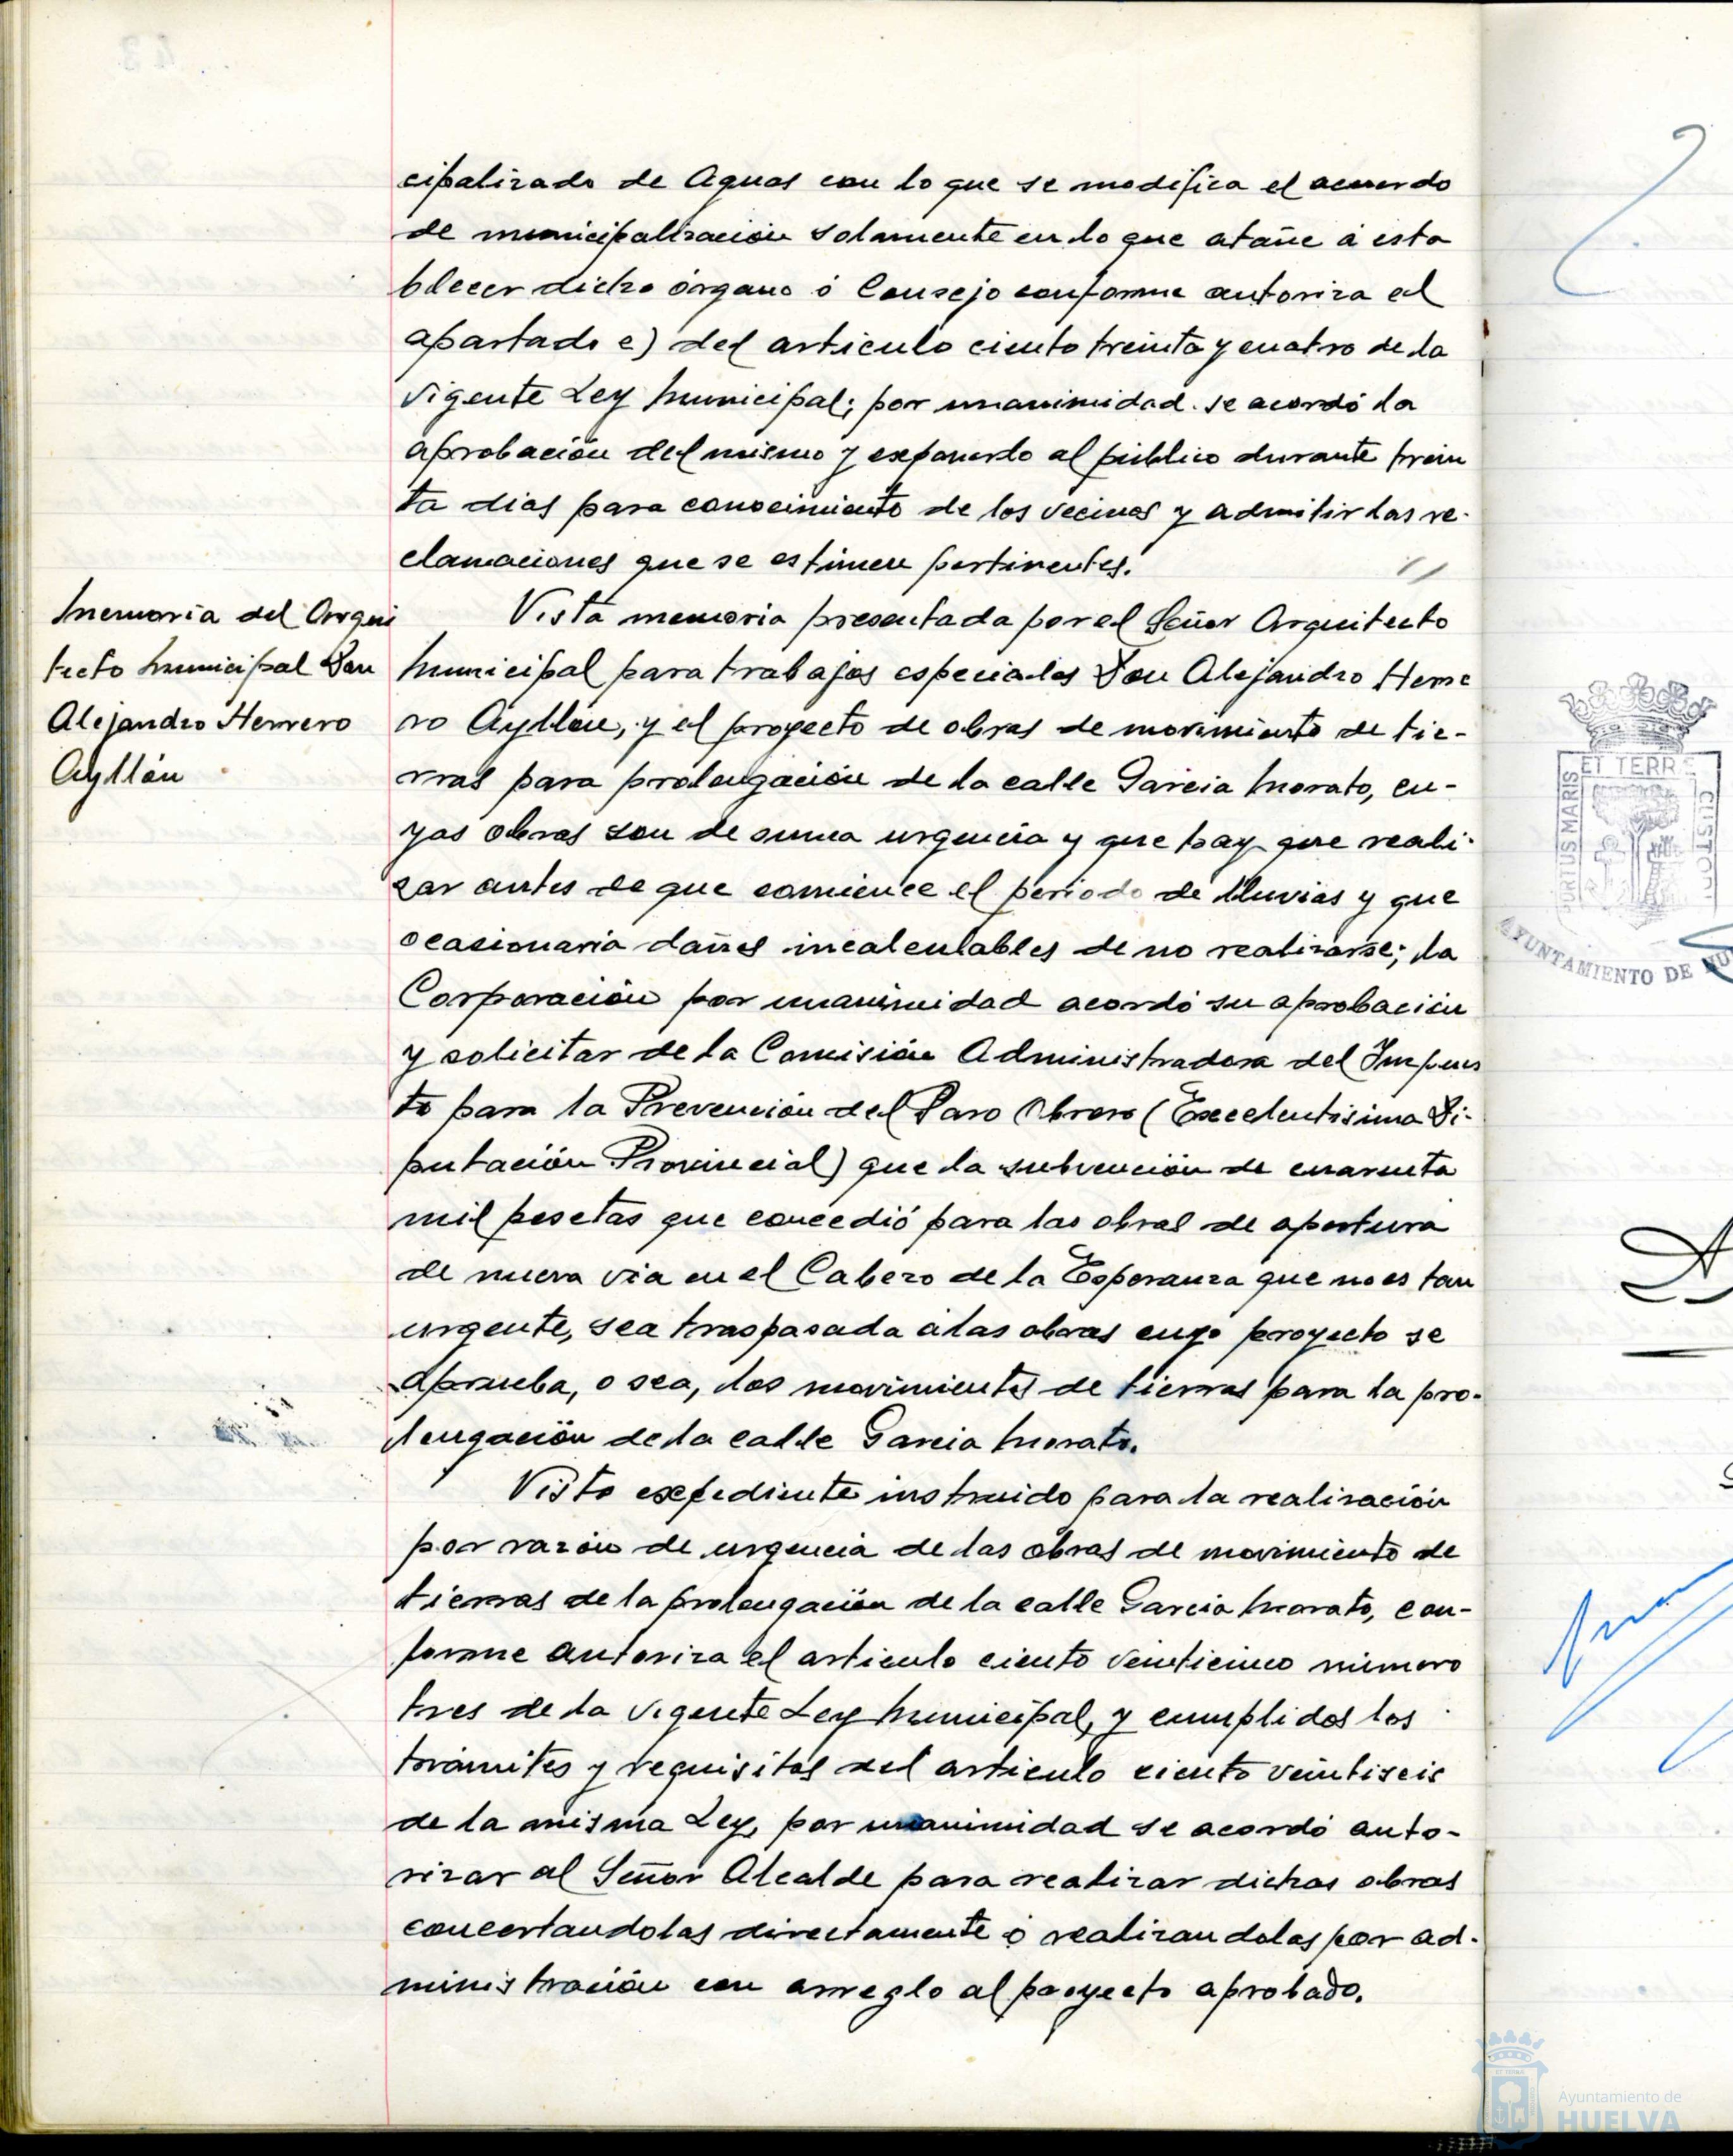 cipalizado de Aguas con lo que se modifica el acuerdo
de municipalización solamente en lo que atañe á esta
blecer dicho órgano ó Consejo conforme autoriza el
apartado e) del articulo ciento treinta y cuatro de la
vigente Ley Municipal; por unanimidad se acordó la
aprobación del mismo y exponerlo al público durante trein
ta dias para conocimiento de los vecinos y admitir las re-
clamaciones que se estimen pertinentes.
Memoria del Arqui
tecto Municipal Don
Alejandro Herrero
Ayllón
Vista memoria presentada por el Señor Arquitecto
Municipal para trabajos especiales Don Alejandro Herre
ro Ayllón, y el proyecto de obras de movimiento de tie-
rras para prolongación de la calle Garcia Morato, cu-
yas obras son de suma urgencia y que hay que reali-
zar antes de que comience el periodo de lluvias y que
ocasionaria daños incalculables de no realizarse; la
Corporación por unanimidad acordó su aprobación
y solicitar de la Comisión Administradora del Impues
to para la Prevención del Paro Obrero (Excelentisima Di-
putación Provincial) que la subvención de cuarenta
mil pesetas que concedió para las obras de apertura
de nueva via en el Cabezo de la Esperanza que no es tan
urgente, sea traspasada a las obras cuyo proyecto se
aprueba, o sea, los movimientos de tierras para la pro-
longación de la calle Garcia Morato.
Visto expediente instruido para la realización
por razón de urgencia de las obras de movimiento de
tierras de la prolongación de la calle Garcia Morato, con-
forme autoriza el articulo ciento veinticinco número
tres de la vigente Ley Municipal, y cumplidos los
trámites y requisitos del articulo ciento veintiseis
de la misma Ley, por unanimidad se acordó auto-
rizar al Señor Alcalde para realizar dichas obras
concertandolas directamente ó realizandolas por ad-
ministración con arreglo al proyecto aprobado.
PORTUS MARIS ET TERRE CUSTODI
AYUNTAMIENTO DE HU
Ayuntamiento de
HUELVA